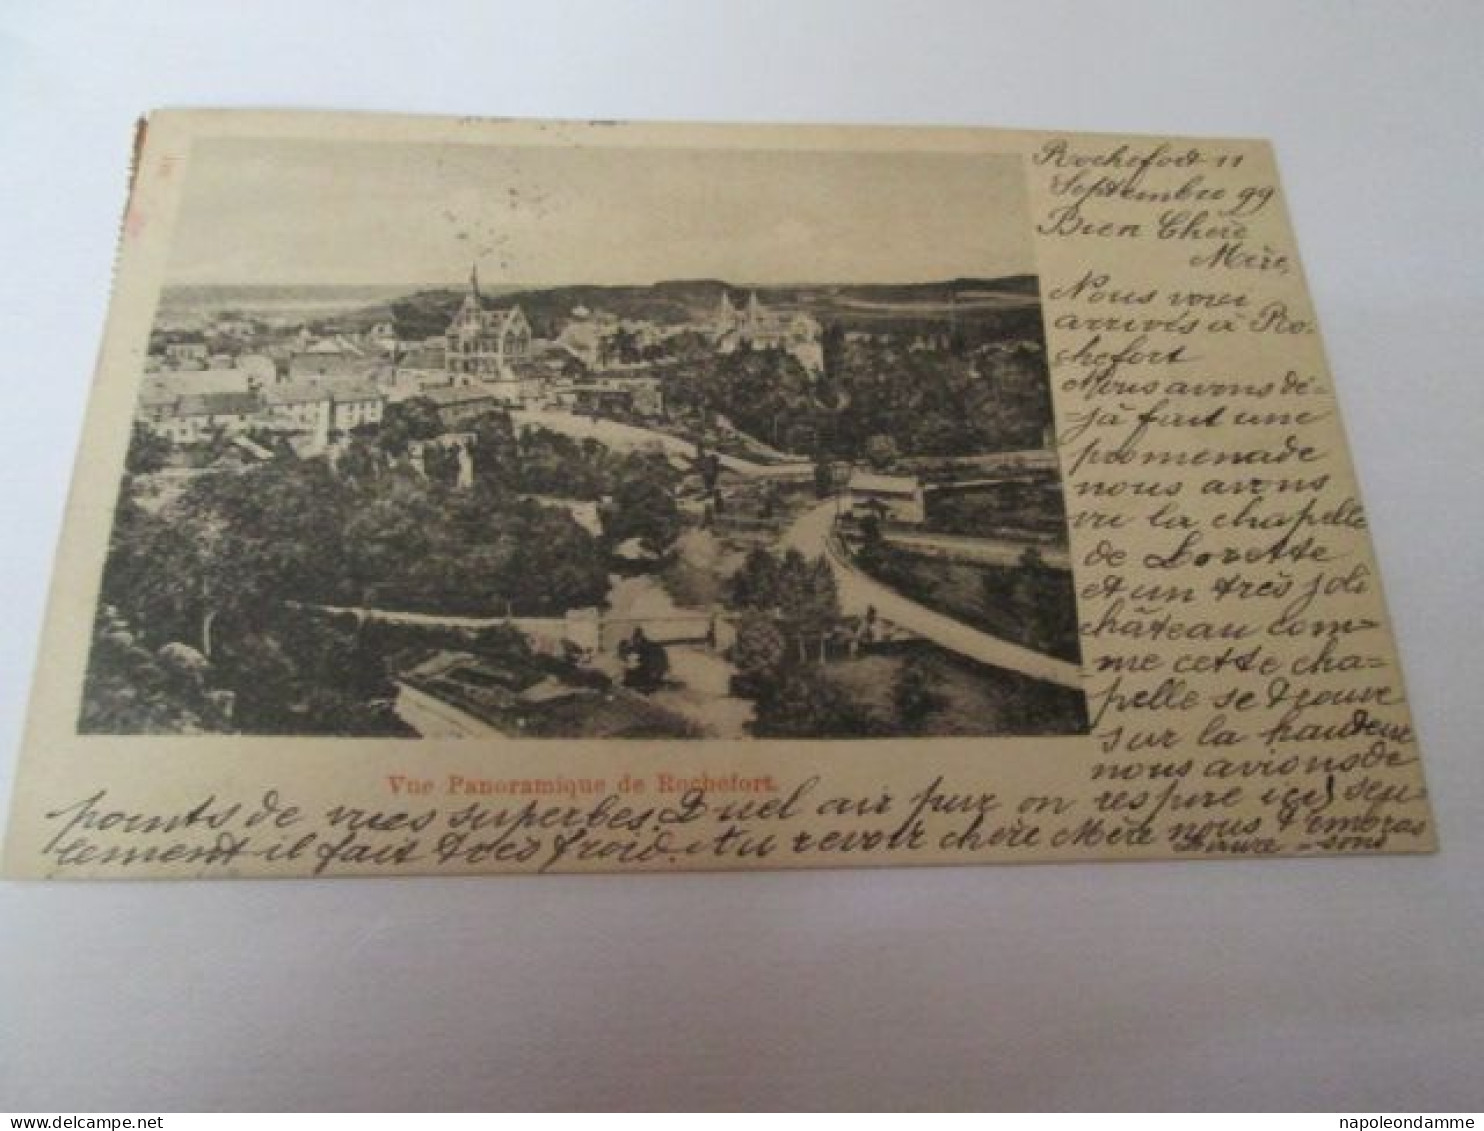 Rochefort 11
Septembre 99
Bien Chère
Mère,
Nous voici
arrivés à Ro-
chefort
Nous avons dé-
jà fait une
promenade
nous avons
vu la chapelle
de Lorette
et un très joli
château com-
me cette cha-
pelle se trouve
sur la hauteur
nous avions de
points de vues superbes. Quel air pur on respire ici! seu-
lement il fait très froid. Au revoir chère Mère nous t'embras
sons
Vue Panoramique de Rochefort.
napoleondamme